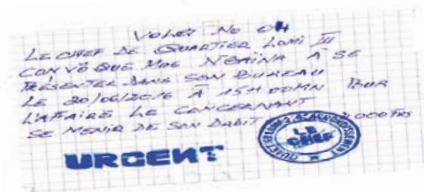 VOLET No 04
LE CHEF DE QUARTIER LOMI III
CONVOQUE MDE NGAINA A SE
PRESENTER DANS SON BUREAU
LE 20/06/2016 A 15H00MN POUR
L'AFFAIRE LE CONCERNANT
SE MENIR DE SON DROIT 2000 FRS
URGENT
LE
CHEF